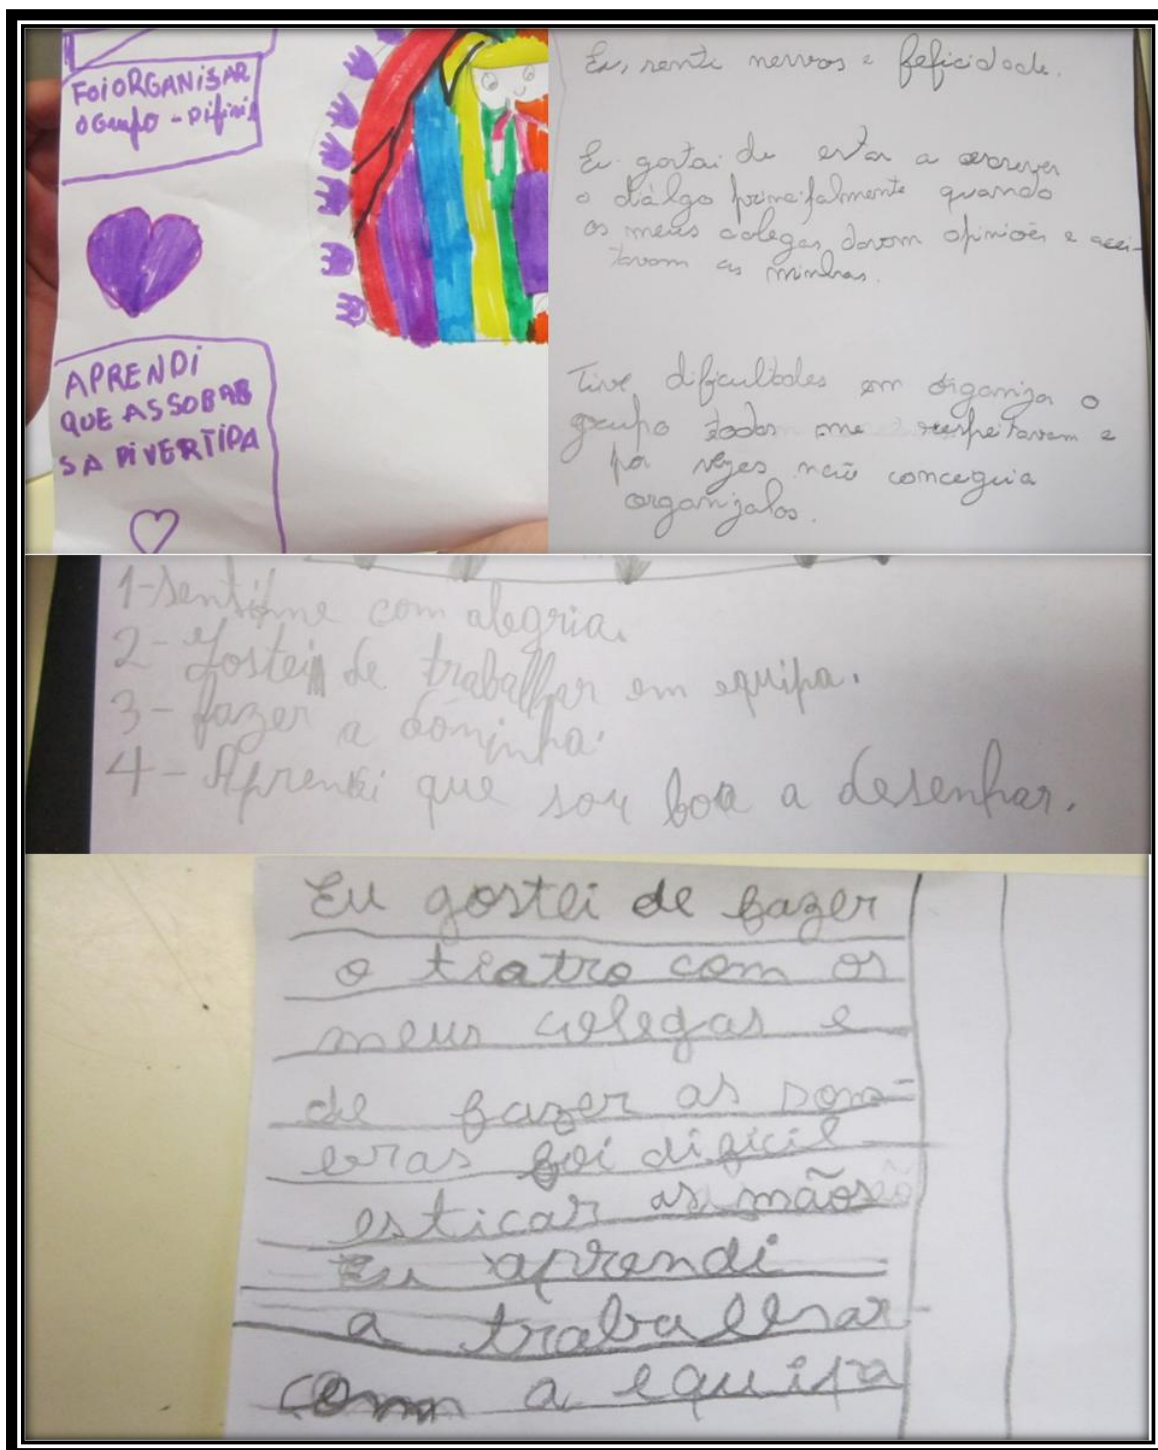 FOI ORGANISAR
O GRUPO - Difinil
APRENDI
QUE AS SOBAB
SA DIVERTIDA
Eu, senti nervos e feficidade.
Eu gostai de estar a escrever
o diálgo principalmente quando
os meus colegas davam opinioẽs e acei-
tavam as minhas.
Tive dificultodes em organiza o
grupo todos me respeitavam e
por vezes não conceguia
organizalos.
1-Sentime com alegria.
2- Gostei de trabalhar em equipa.
3- fazer a
4- Aprendi que sou boa a desenhar.
Eu gostei de fazer
o tiatro com os
meus colegas e
de fazer as som-
bras foi dificil
esticar as mãos
Eu aprendi
a trabalhar
com a equipa